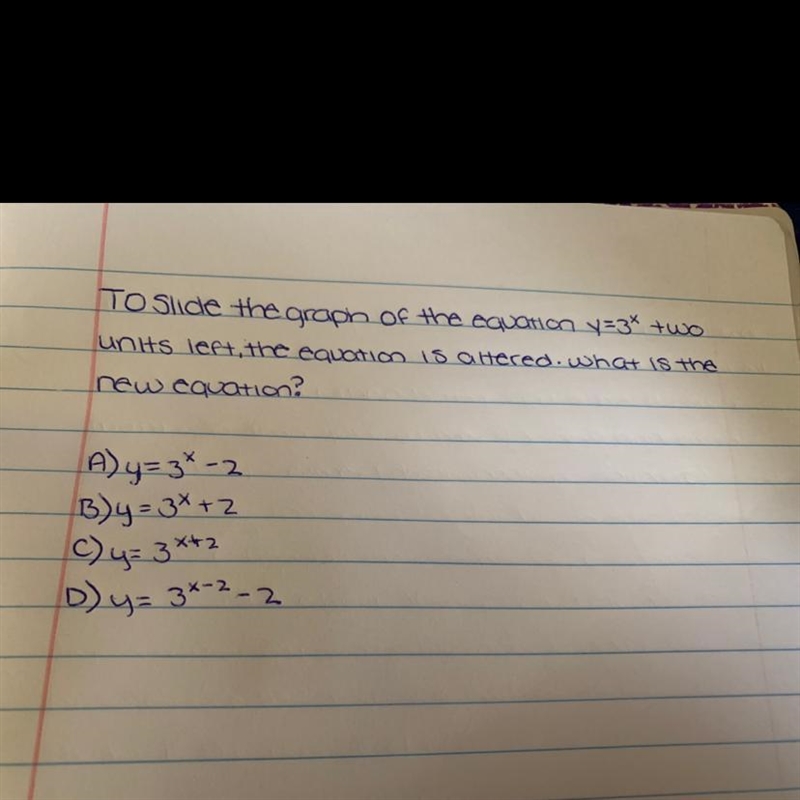 To Slide the graph of the equation y=3ˣ two
units left, the equation is altered. what is the
new equation?
A) y=3ˣ -2
B) y=3ˣ+2
C) y= 3ˣ⁺²
D) y= 3ˣ⁻² -2